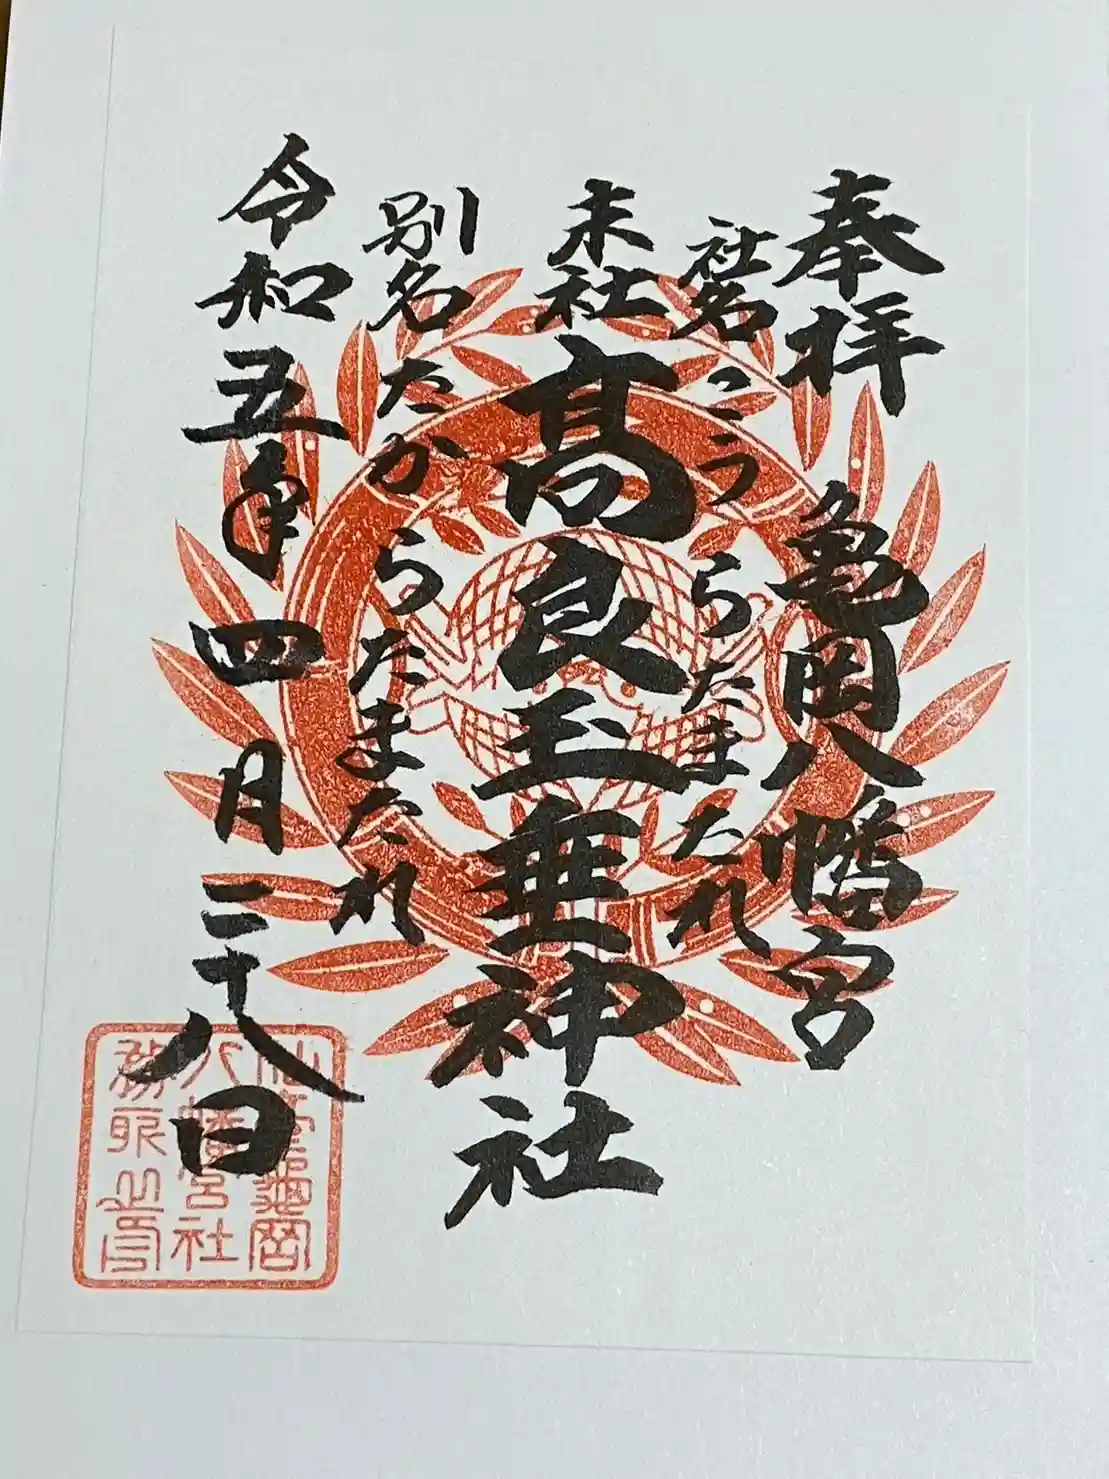 奉拝
亀岡八幡宮
社名 こうらたまたれ
末社
高良玉垂神社
別名 たからたまたれ
令和五年四月二十八日
仙臺龜岡
八幡宮社
務所之印